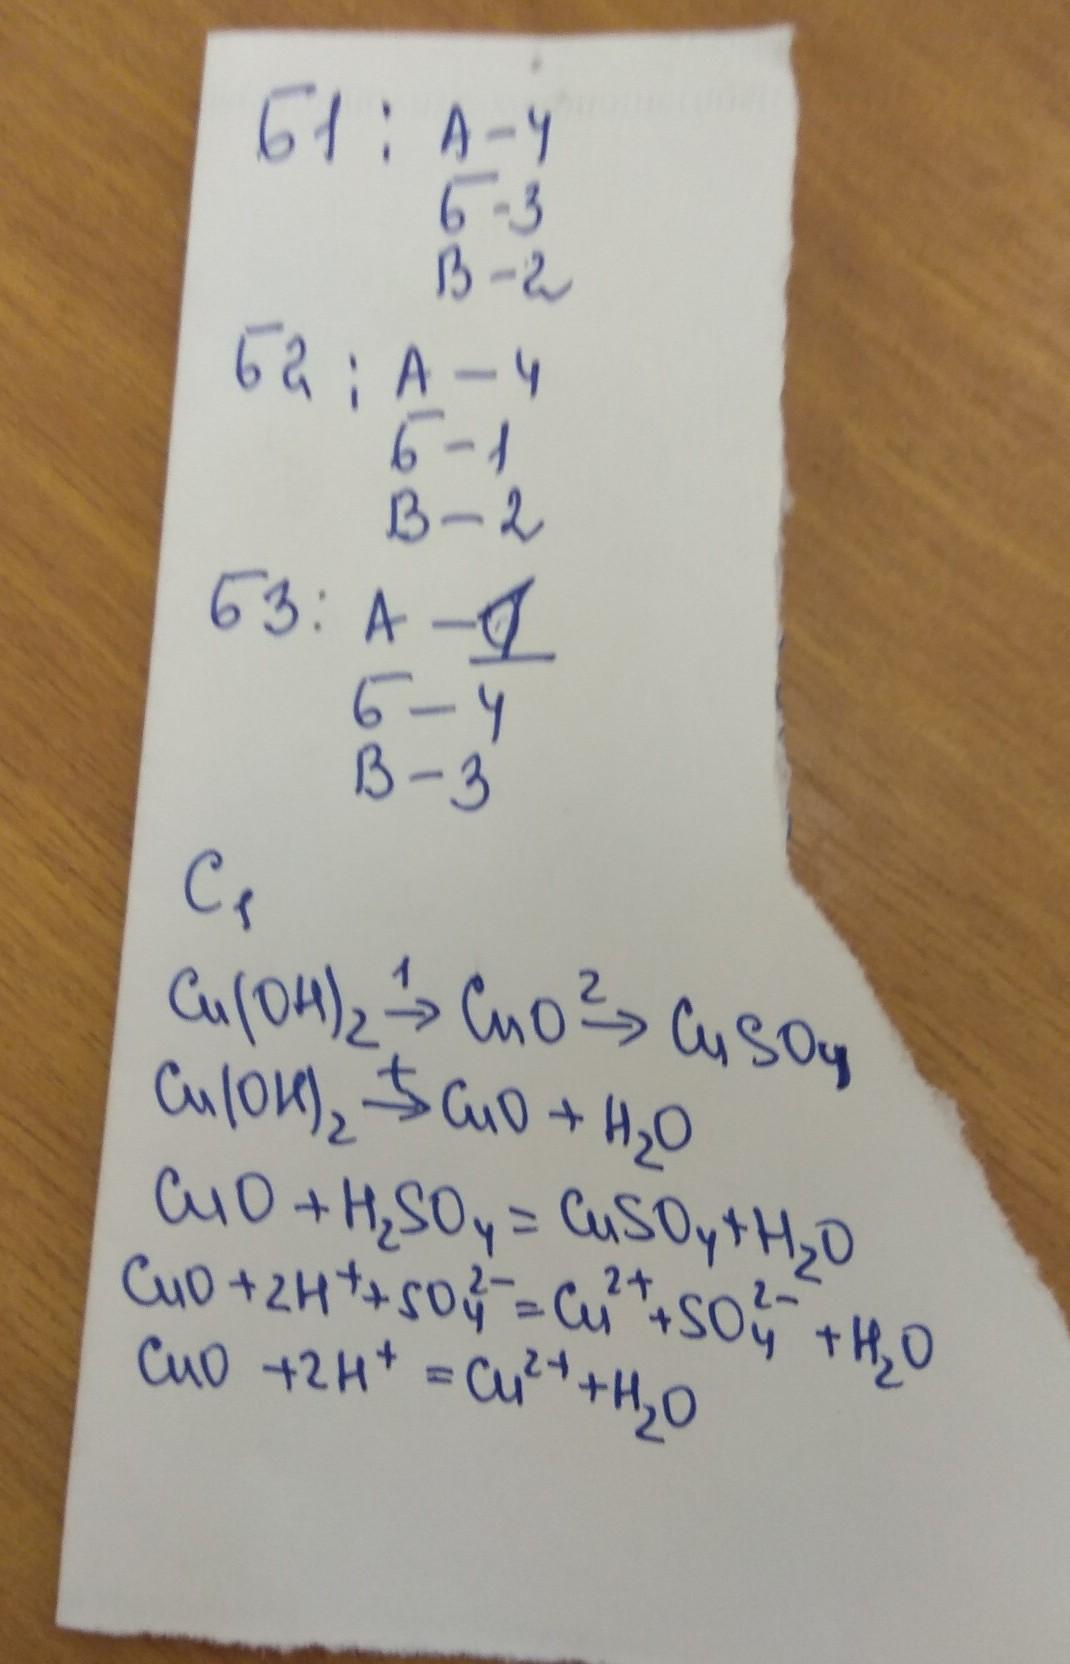 Б1: А-4
Б-3
В-2
Б2: А-4
Б-1
В-2
Б3: А-
Б-4
В-3
С₁
Cu(OH)₂ →¹ CuO →² CuSO₄
Cu(OH)₂ →ᵗ CuO + H₂O
CuO + H₂SO₄ = CuSO₄ + H₂O
CuO + 2H⁺ + SO₄²⁻ = Cu²⁺ + SO₄²⁻ + H₂O
CuO + 2H⁺ = Cu²⁺ + H₂O